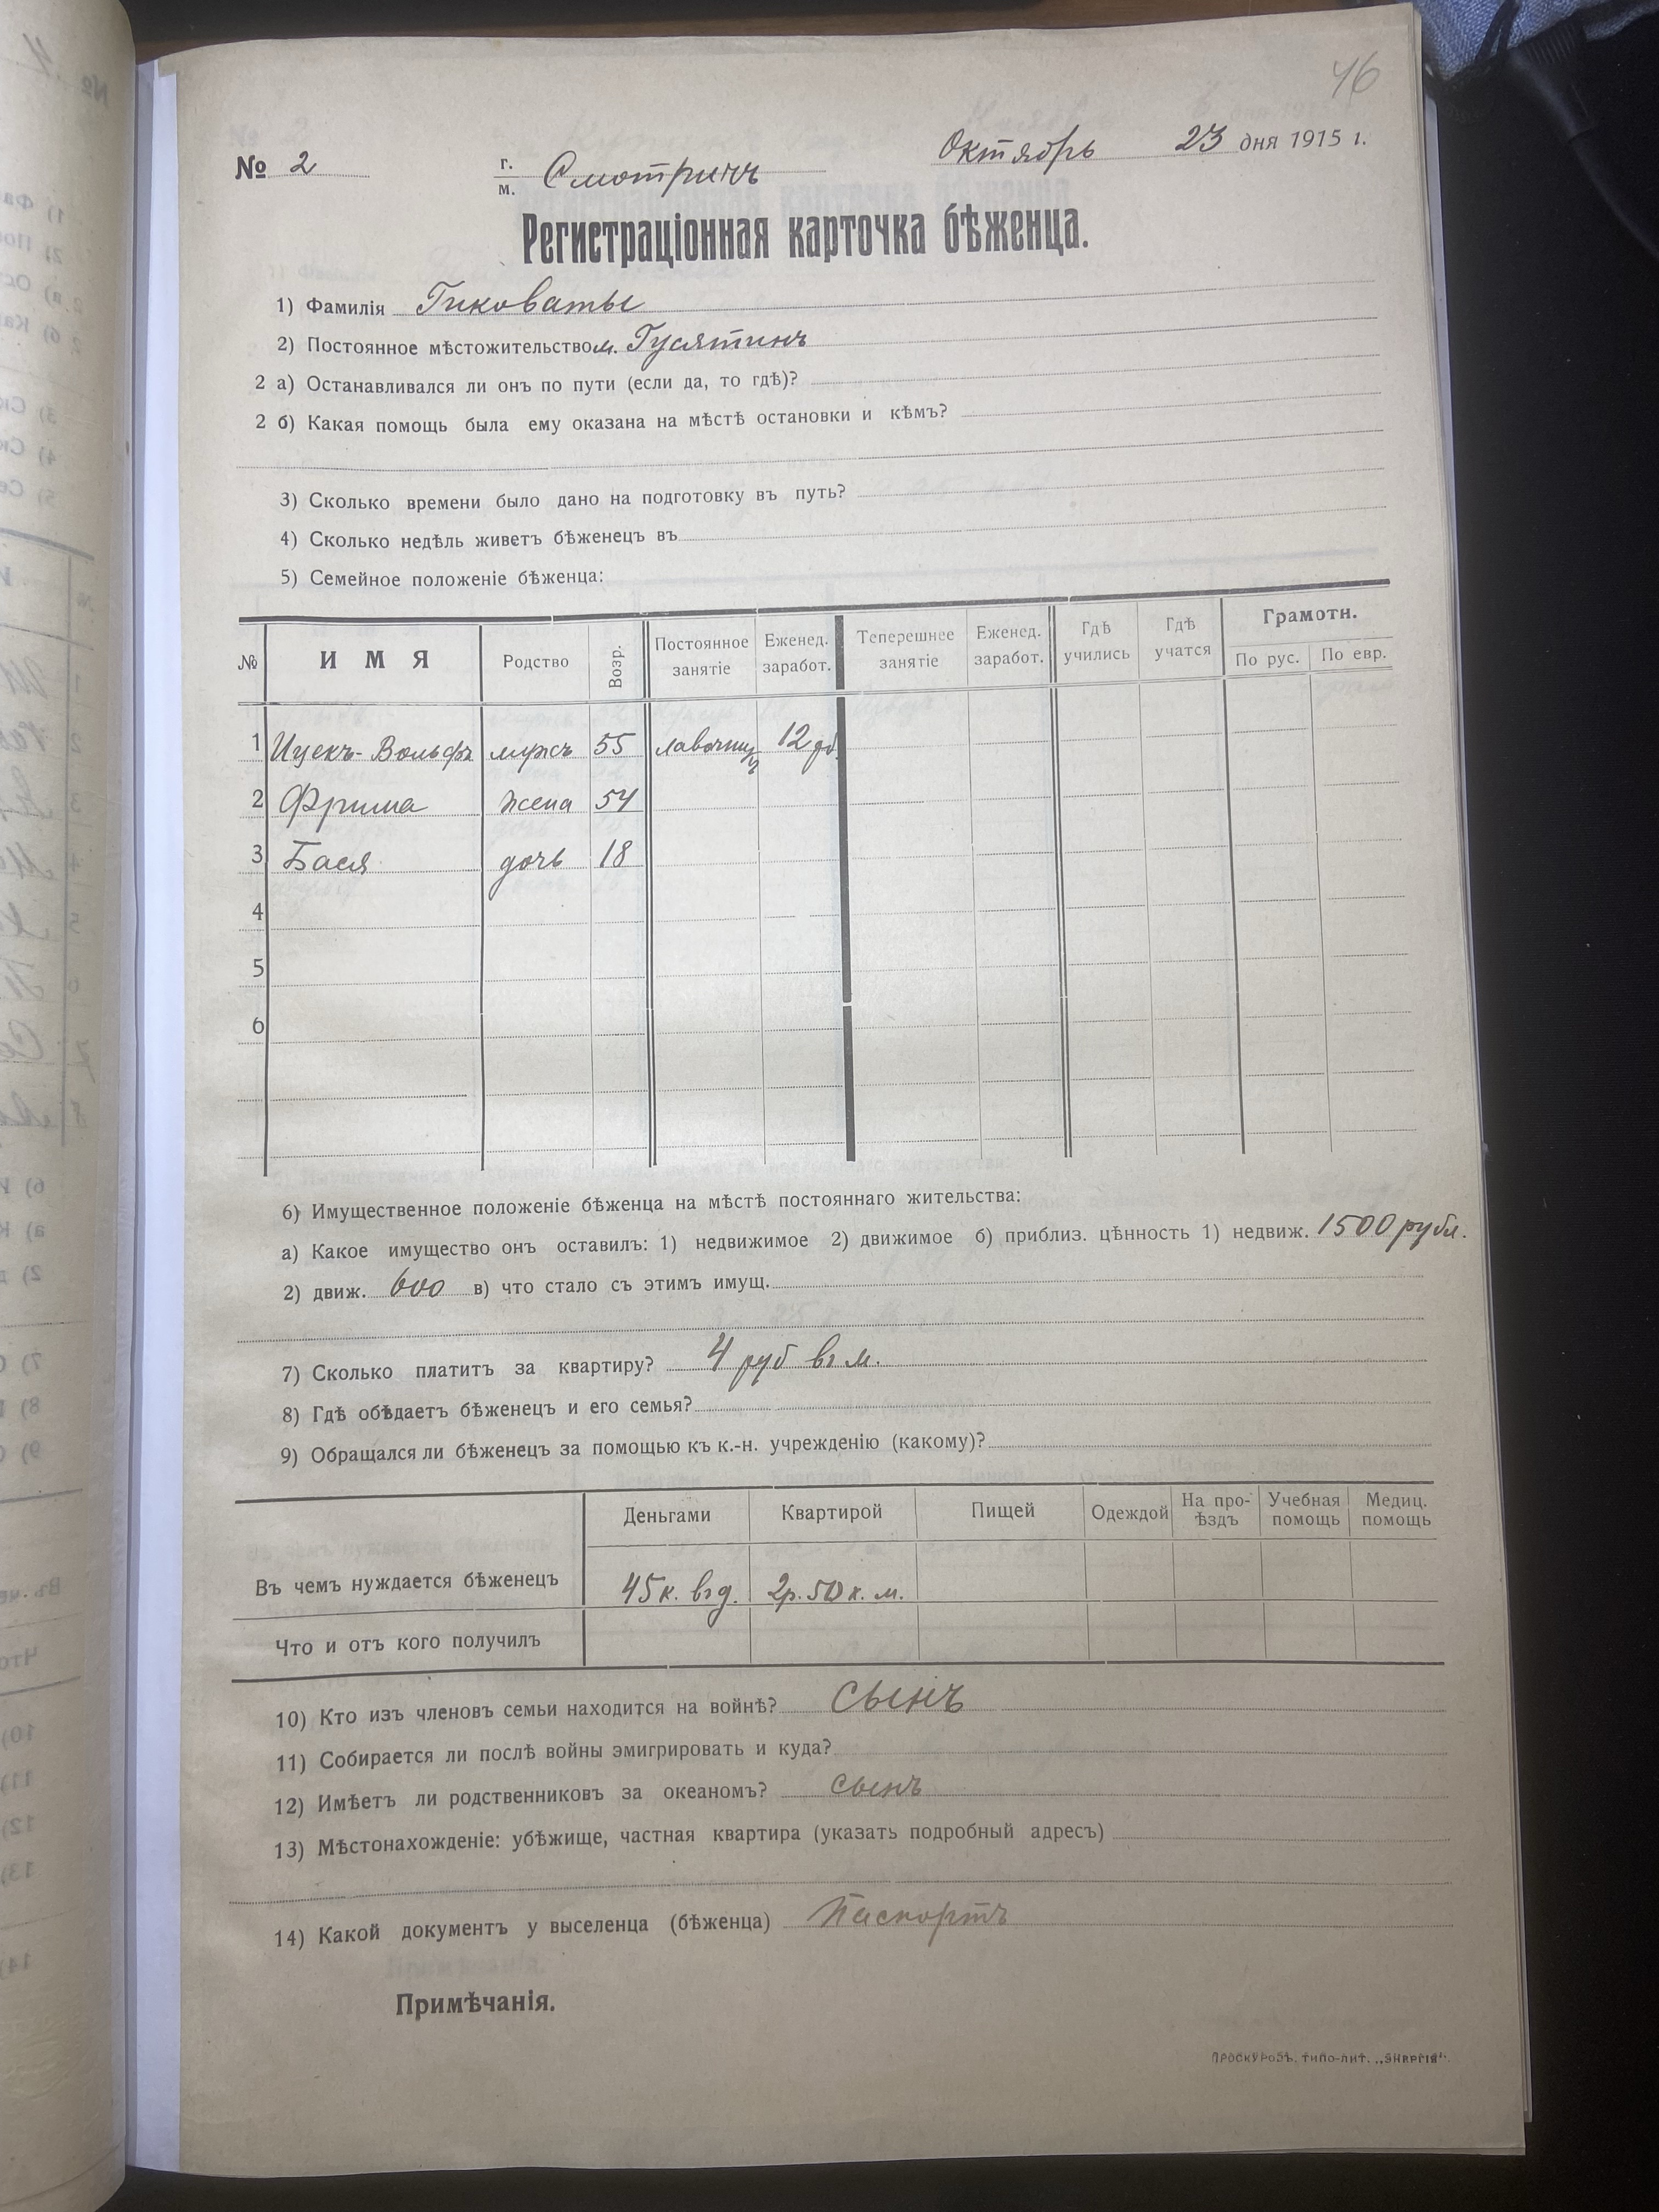 46
№ 2 г. м. Смотричъ Октябрь 23 дня 1915 г.
Регистраціонная карточка бѣженца.
1) Фамилія Гиковаты
2) Постоянное мѣстожительство м. Гусятинъ
2 а) Останавливался ли онъ по пути (если да, то гдѣ)?
2 б) Какая помощь была ему оказана на мѣстѣ остановки и кѣмъ?
3) Сколько времени было дано на подготовку въ путь?
4) Сколько недѣль живетъ бѣженецъ въ
5) Семейное положеніе бѣженца:
№ ИМЯ Родство Возр. Постоянное занятіе Еженед. заработ. Теперешнее занятіе Еженед. заработ. Гдѣ учились Гдѣ учатся Грамотн. По рус. По евр.
1 Ицекъ-Вольфъ мужъ 55 лавочникъ 12 рб.
2 Фрима жена 54
3 Бася дочь 18
4
5
6
6) Имущественное положеніе бѣженца на мѣстѣ постояннаго жительства:
а) Какое имущество онъ оставилъ: 1) недвижимое 2) движимое б) приблиз. цѣнность 1) недвиж. 1500 рубл.
2) движ. 600 в) что стало съ этимъ имущ.
7) Сколько платитъ за квартиру? 4 руб въ м.
8) Гдѣ обѣдаетъ бѣженецъ и его семья?
9) Обращался ли бѣженецъ за помощью къ к.-н. учрежденію (какому)?
Деньгами Квартирой Пищей Одеждой На про-ѣздъ Учебная помощь Медиц. помощь
Въ чемъ нуждается бѣженецъ 45 к. въ д. 2 р. 50 к. м.
Что и отъ кого получилъ
10) Кто изъ членовъ семьи находится на войнѣ? сынъ
11) Собирается ли послѣ войны эмигрировать и куда?
12) Имѣетъ ли родственниковъ за океаномъ? сынъ
13) Мѣстонахожденіе: убѣжище, частная квартира (указать подробный адресъ)
14) Какой документъ у выселенца (бѣженца) Паспортъ
Примѣчанія.
ПРОСКУРОВЪ, ТИПО-ЛИТ. „ЭНЕРГІЯ".